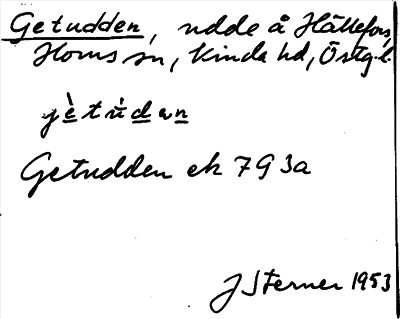 Getudden, udde å Hällefors,
Horns sn, Kinda hd, Östg. l.
jètùdən
Getudden ek 7 G 3a
J Sterner 1953